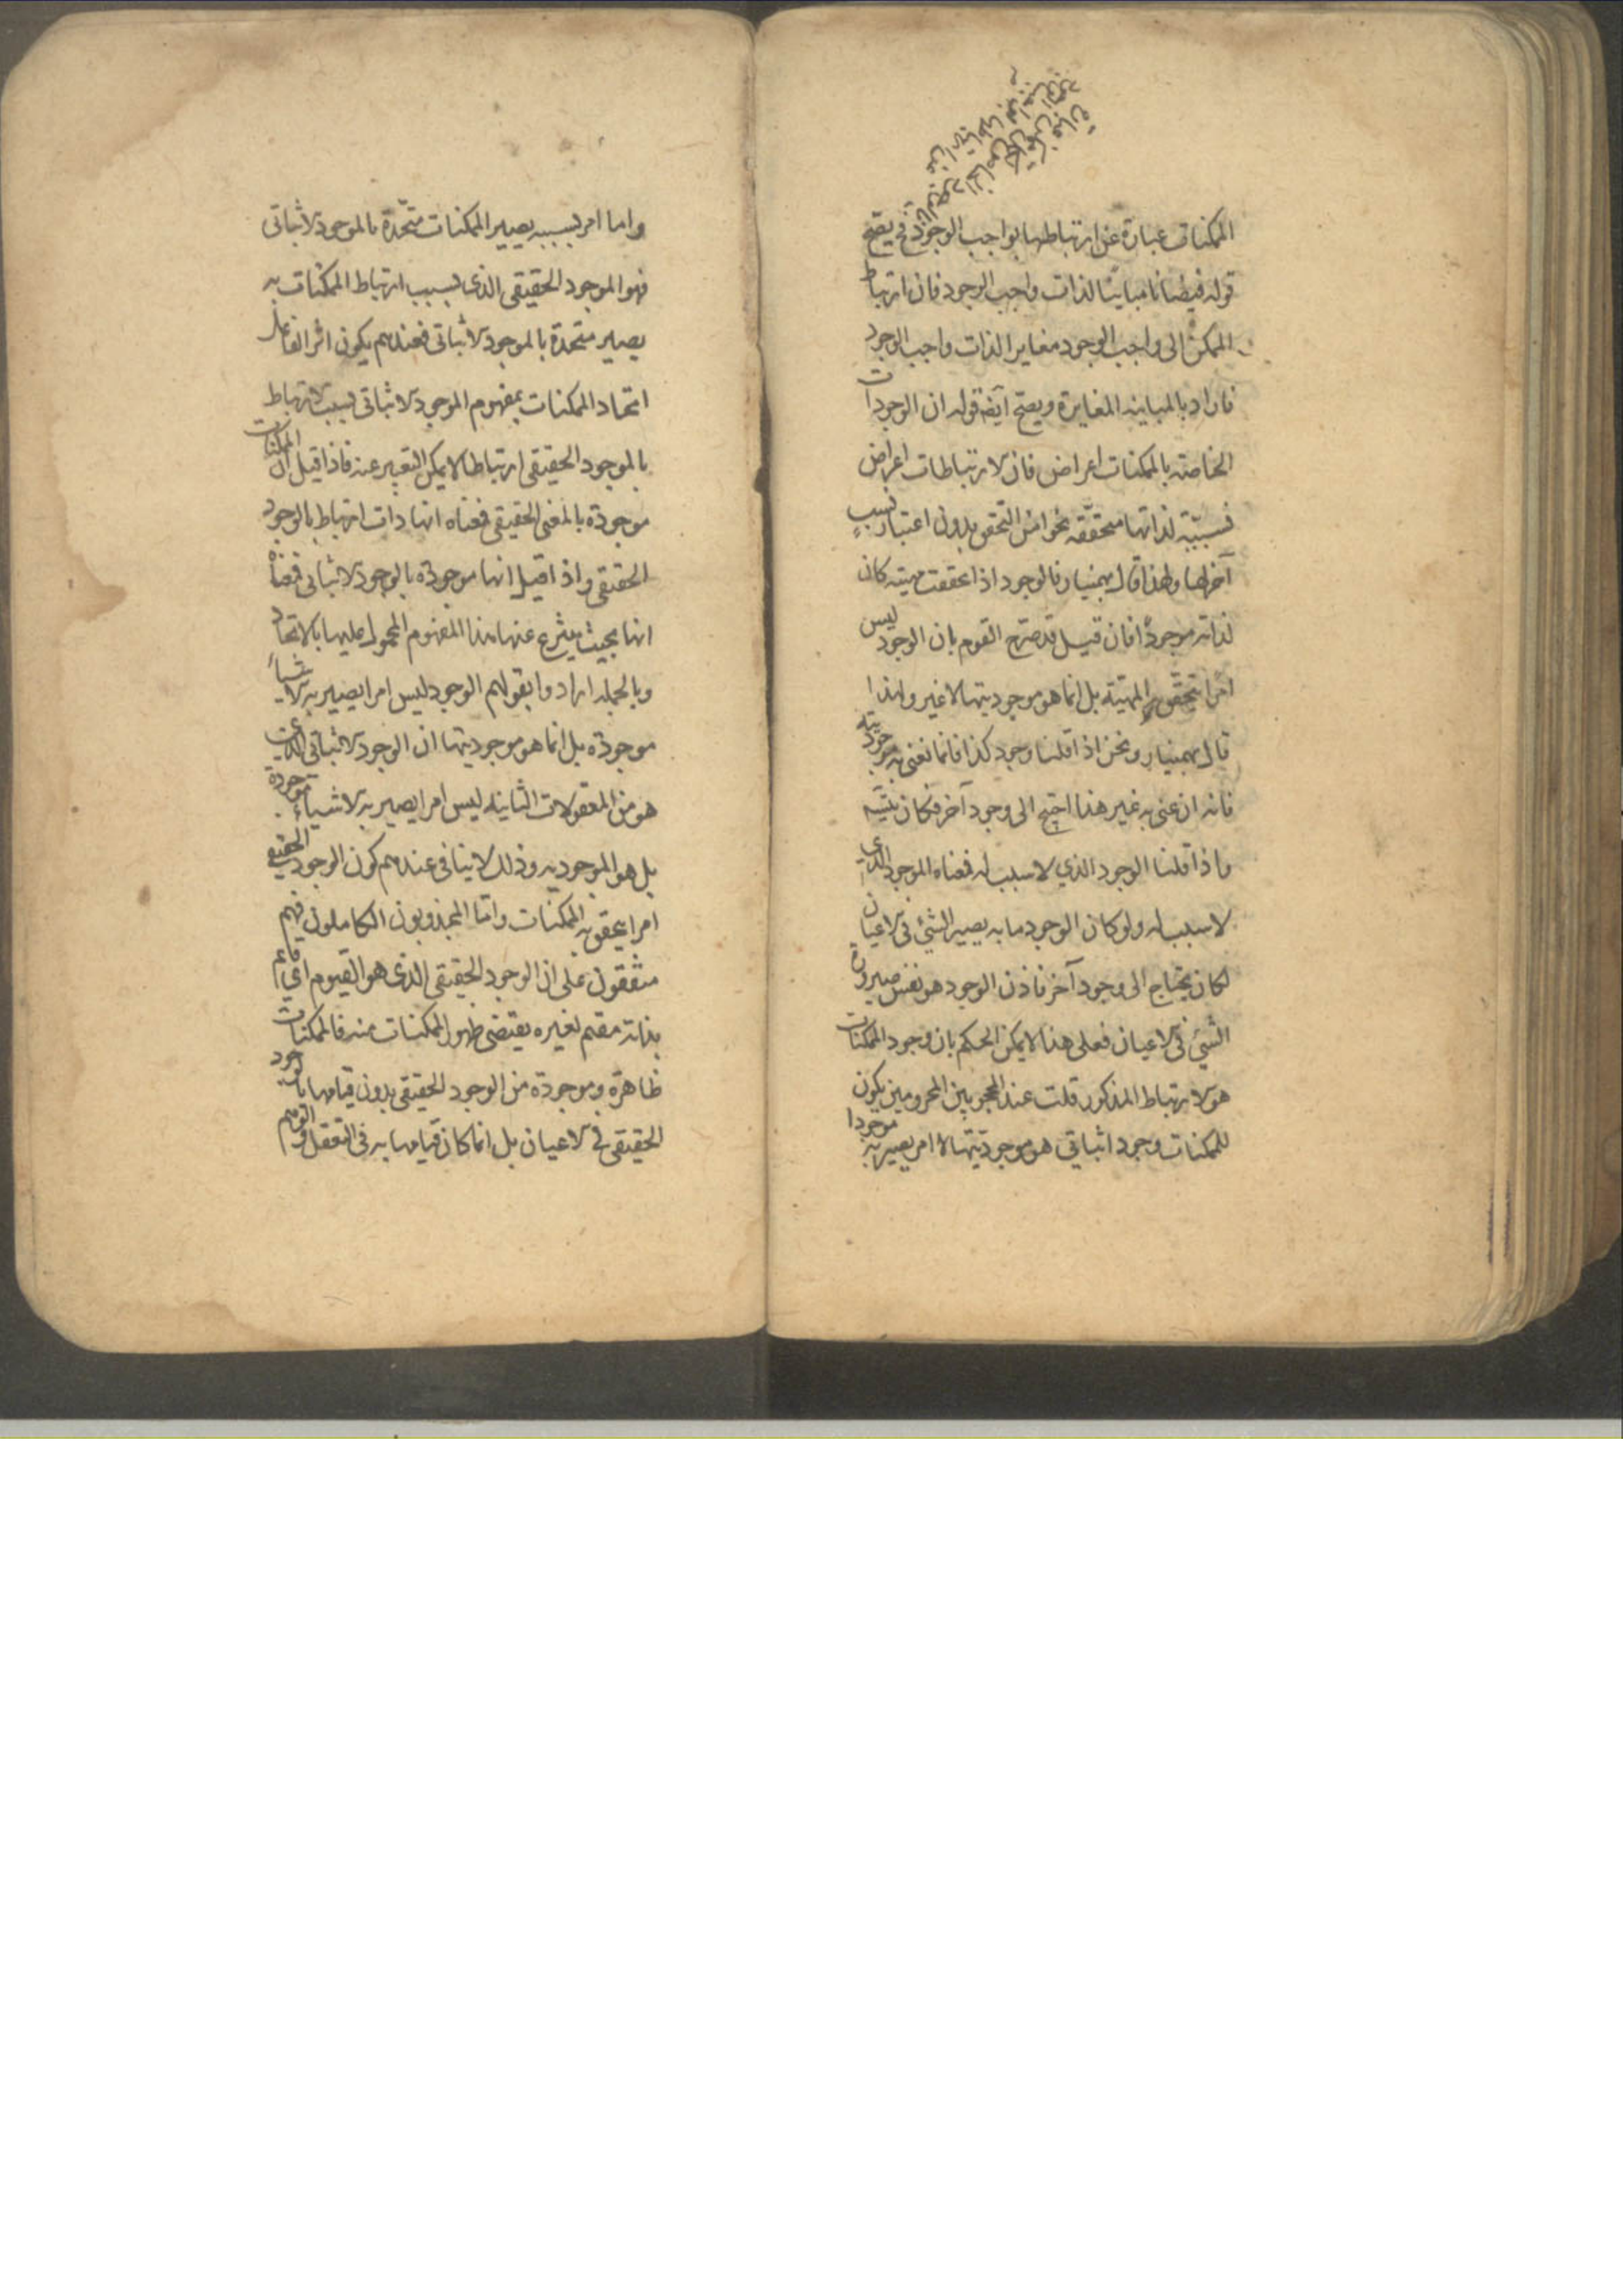 الممكنات عبارة عن ارتباطها بواجب الوجود فح يصح
قوله فيضانا مباينا لذات واجب الوجود فان ارتباط
الممكن الى واجب الوجود مغاير الذات واجب الوجود
فاراد بالمباينه المغايرة ويصح آيضه قوله ان الوجودات
الخاصة بالممكنات اعراض فان الارتباطات اعراض
نسبيّة لذاتها متحقّقه نحوا من التحقق بدون اعتبار نسب
آخر لها ولهذا قال بهمنيار فالوجود اذا عققت مهيته كان
لذاته موجوداً فان قيل قد صرّح القوم بان الوجود ليس
امرا يتحقّق به المهيّة بل انما هو موجوديتها لا غير ولهذا
قال بهمنيار ونحن اذا قلنا وجود كذا فانما نعنى به موجوديته
فانه ان عنى به غير هذا احتيج الى وجود آخر فكان
واذا قلنا الوجود الذي لا سبب له فمعناه الموجود الذي
لا سبب له ولو كان الوجود ما به يصير الشئ فى الاعيان
لكان يحتاج الى وجود آخر فاذن الوجود هو نفس صيرورة
الشئ فى الاعيان فعلى هذا لا يمكن الحكم بان وجود الممكنات
هو الارتباط المذكور قلت عند المحجوبين المحرومين يكون
للممكنات وجود اثباتي هو موجوديّتها لا امر يصير به موجودا
واما امر بسببه يصير الممكنات متّحدة بالموجود الاثباتى
فهو الموجود الحقيقى الذى بسبب ارتباط الممكنات به
يصير متحدة بالموجود الاثباتى فعندهم يكون اثر الفاعل
اتحاد الممكنات بمفهوم الموجود الاثباتى بسبب الارتباط
بالموجود الحقيقى ارتباطا لا يمكن التعبير عنه فاذا قيل ان الممكنات
موجودة بالمعنى الحقيقى فمعناه انها ذات ارتباط بالوجود
الحقيقى واذا قيل انها موجودة بالوجود الاثباتى فمعناه
انها بحيث ينتزع عنها هذا المفهوم المحمول عليها بالاتحاد
وبالجمله ارادوا بقولهم الوجود ليس امرا يصير به الاشياء
موجودة بل انما هو موجوديتها ان الوجود الاثباتى الذي
هو من المعقولات الثانيه ليس امرا يصير به الاشياء موجودة
بل هو الموجوديه وذلك لا ينافى عندهم كون الوجود الحقيقى
امرا يحقق به الممكنات وامّا المجذوبون الكاملون فهم
متفقون على ان الوجود الحقيقى الذى هو القيوم اي قائم
بذاته مقيم لغيره يقتضى ظهور الممكنات منه فالممكنات
ظاهرة وموجودة من الوجود الحقيقى بدون قيامها بالوجود
الحقيقى في الاعيان بل انما كان قيامها به فى التعقل والتوهم